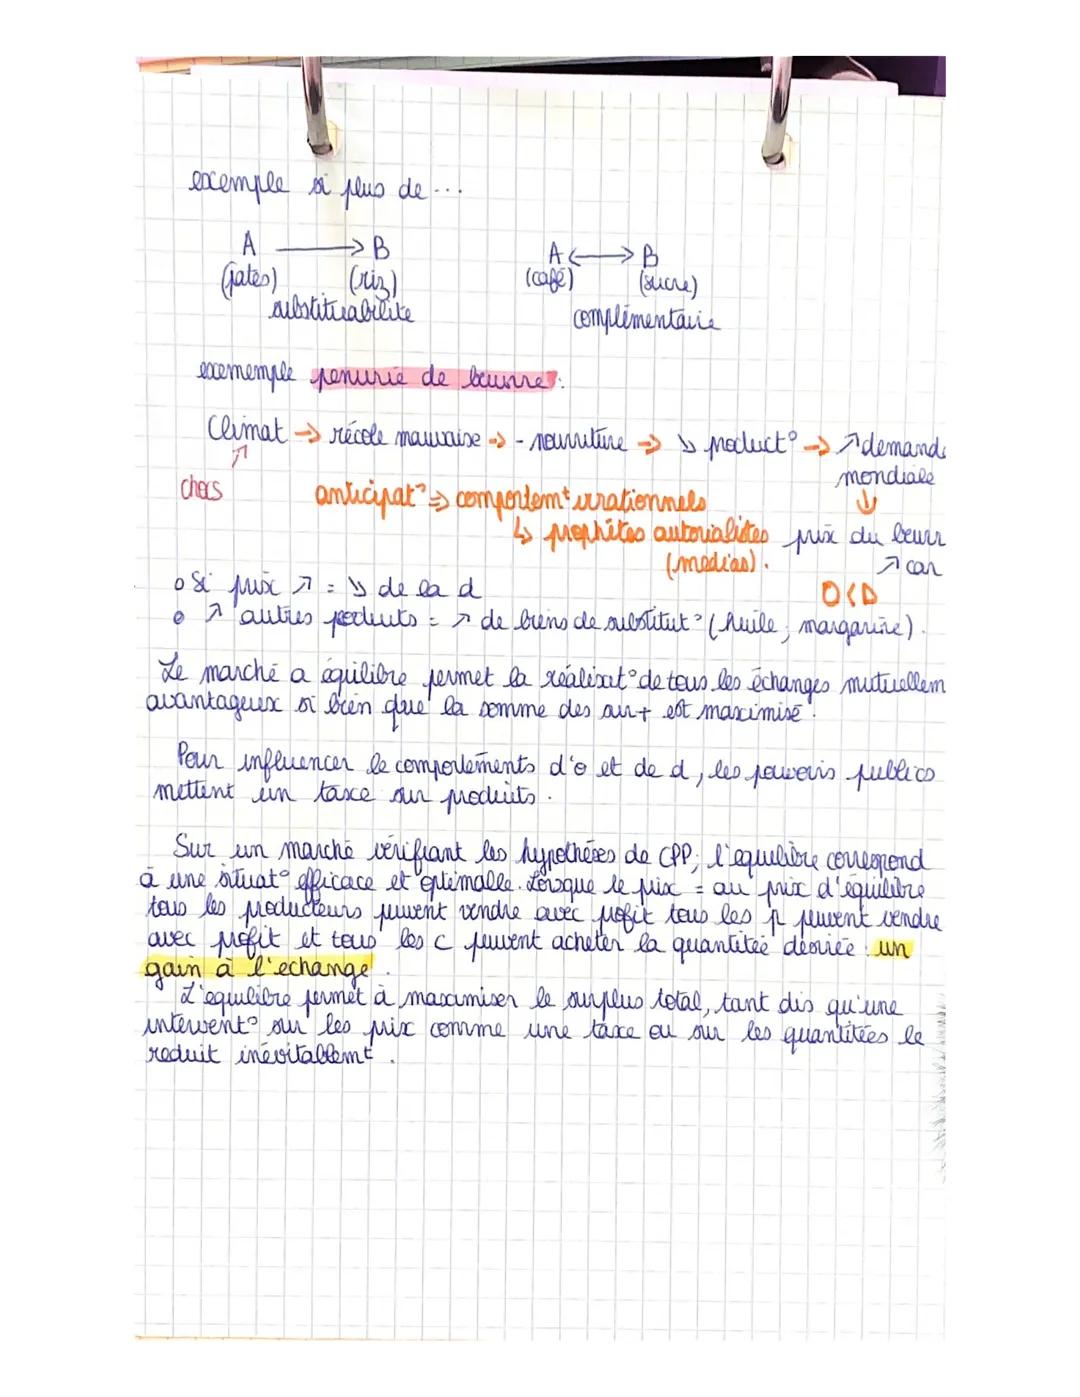 exemple si plus de ...
A → B
A ↔ B
(pates) (riz)
(café) (sucre)
substituabilité
complémentaire
exememple penurie de beurre :
Climat → récole mauvaise → - nourriture → ↘ product° → ↗ demande
mondiale
chocs
↓
anticipat° ⇒ comportemt irrationnels
↳ prophètes autorialistes prix du beurr
(medias). ↗ car
O<D
o Si prix ↗ = ↘ de la d
o ↗ autres poduits = ↗ de biens de substitut° (huile, margarine).
Le marché a équilibre permet la réalisat° de tous les échanges mutuellem
avantageux si bien que la somme des sur+ est maximisé.
Pour influencer le comportements d'o et de d, les pouvoirs publics
mettent un taxe sur produits.
Sur un marché vérifiant les hypothéses de CPP, l'equilibre correspond
à une situat° efficace et optimalle. Lorsque le prix = au prix d'équilibre
tous les producteurs peuvent vendre avec profit tous les p peuvent vendre
avec profit et tous les c peuvent acheter la quantitée désirée : un
gain à l'echange.
L'equilibre permet à maximiser le surplus total, tant dis qu'une
intervent° sur les prix comme une taxe ou sur les quantitées le
reduit inévitablemt.